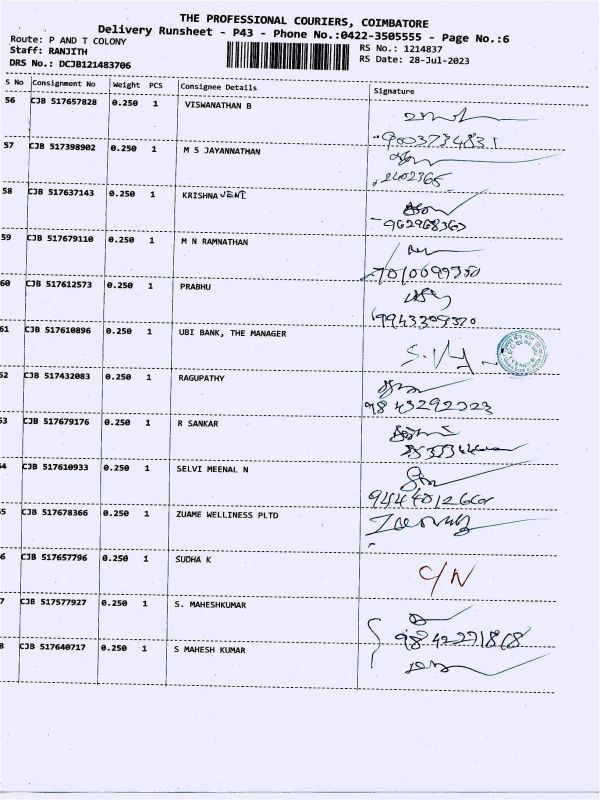 THE PROFESSIONAL COURIERS, COIMBATORE
Delivery Runsheet - P43 - Phone No.:0422-3505555 - Page No.:6
Route: P AND T COLONY
Staff: RANJITH
DRS No.: DCJB121483706
RS No.: 1214837
RS Date: 28-Jul-2023
S No Consignment No Weight PCS Consignee Details Signature
56 CJB 517657828 0.250 1 VISWANATHAN B
9003734831
57 CJB 517398902 0.250 1 M S JAYANNATHAN
2402365
58 CJB 517637143 0.250 1 KRISHNAVENI
59 CJB 517679110 0.250 1 M N RAMNATHAN
60 CJB 517612573 0.250 1 PRABHU
61 CJB 517610896 0.250 1 UBI BANK, THE MANAGER
62 CJB 517432083 0.250 1 RAGUPATHY
9843292323
63 CJB 517679176 0.250 1 R SANKAR
64 CJB 517610933 0.250 1 SELVI MEENAL N
65 CJB 517678366 0.250 1 ZUAME WELLINESS PLTD
6 CJB 517657796 0.250 1 SUDHA K C/N
7 CJB 517577927 0.250 1 S. MAHESHKUMAR
8 CJB 517640717 0.250 1 S MAHESH KUMAR